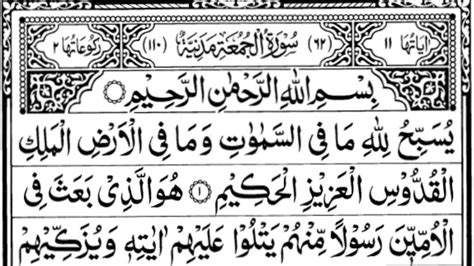 اٰيَاتُهَا ١١ (٦٢) سُوۡرَةُ الۡجُمُعَةِ مَدَنِيَّةٌ (١١٠) رُكُوۡعَاتُهَا ٢
بِسۡمِ اللّٰهِ الرَّحۡمٰنِ الرَّحِيۡمِ
يُسَبِّحُ لِلّٰهِ مَا فِى السَّمٰوٰتِ وَمَا فِى الۡاَرۡضِ الۡمَلِكِ
الۡقُدُّوۡسِ الۡعَزِيۡزِ الۡحَكِيۡمِ ۝١ هُوَ الَّذِىۡ بَعَثَ فِى
الۡاُمِّيّٖنَ رَسُوۡلًا مِّنۡهُمۡ يَتۡلُوۡا عَلَيۡهِمۡ اٰيٰتِهٖ وَيُزَكِّيۡهِمۡ